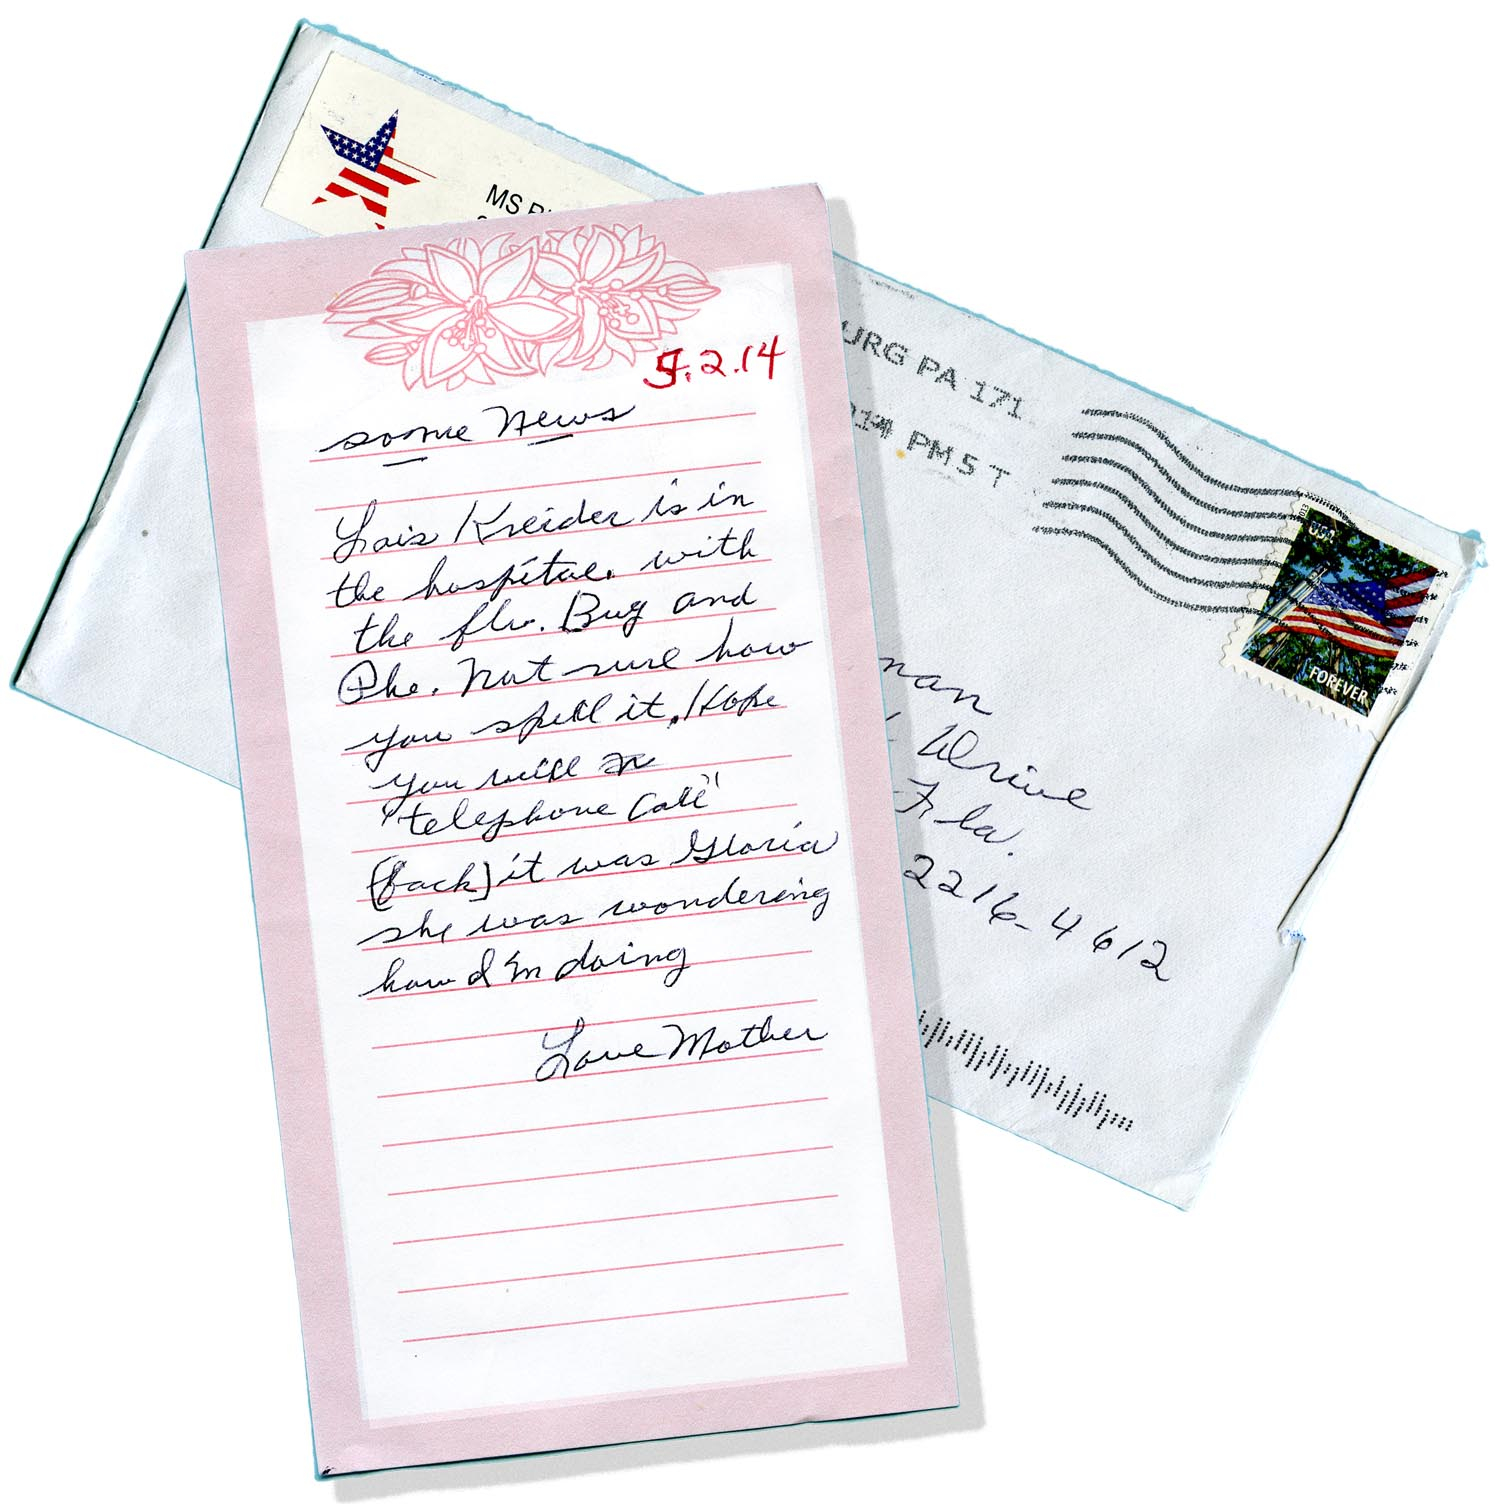 MS
5.2.14
some News
Lois Kreider is in
the hospital. with
the flu. Bug and
Phe. Not sure how
you spell it. Hope
you will
"telephone Call"
[back] it was Gloria
she was wondering
how I'm doing
Love Mother
URG PA 171
PM 5 T
USA
2013
FOREVER
man
Drive
Fla.
2216-4612